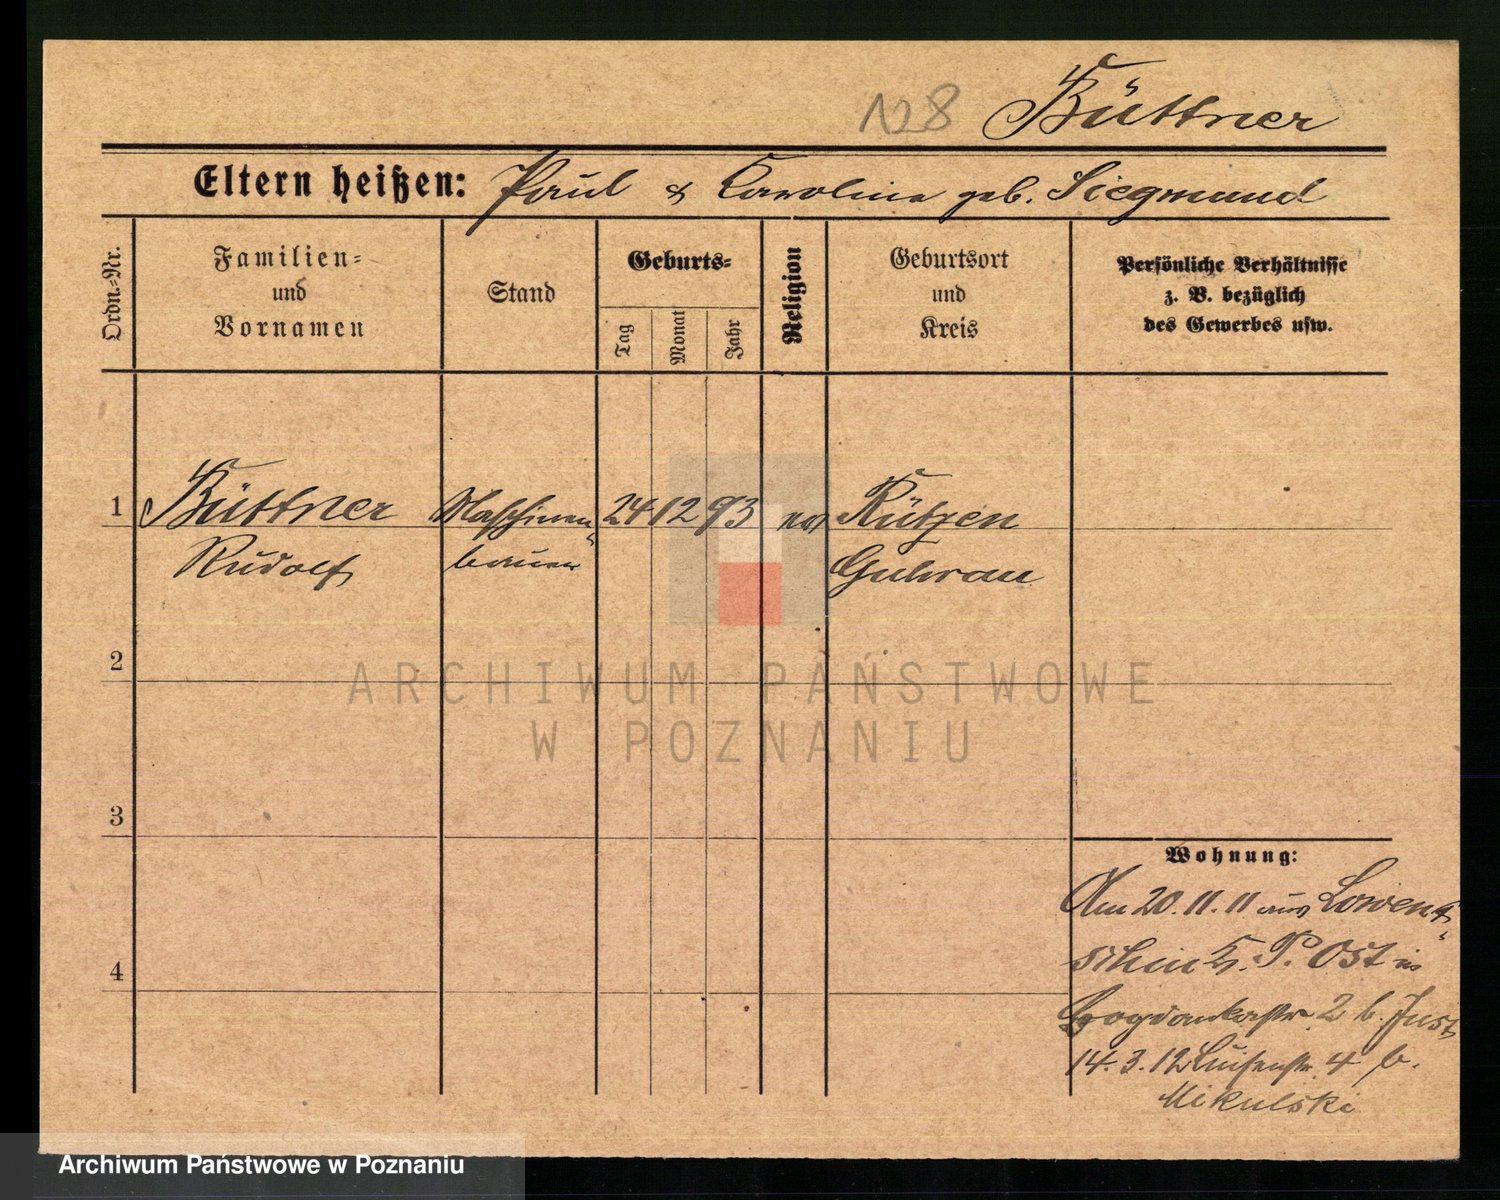 128 Büttner
Eltern heißen: Paul & Karoline geb. Siegmund
Ordn.=Nr.
Familien=
und
Vornamen
Stand
Geburts=
Tag
Monat
Jahr
Religion
Geburtsort
und
Kreis
Persönliche Verhältnisse
z. B. bezüglich
des Gewerbes usw.
1 Büttner Maschinen 24 12 93 Rützen
Rudolf bauer Guhrau
2
3
4
Wohnung:
Am 20.11.11 aus
P. Ost in
Bogdankastr 2 b. Just
14.3.12 Luisenstr 4 b.
Mikulski
ARCHIWUM PAŃSTWOWE
W POZNANIU
Archiwum Państwowe w Poznaniu